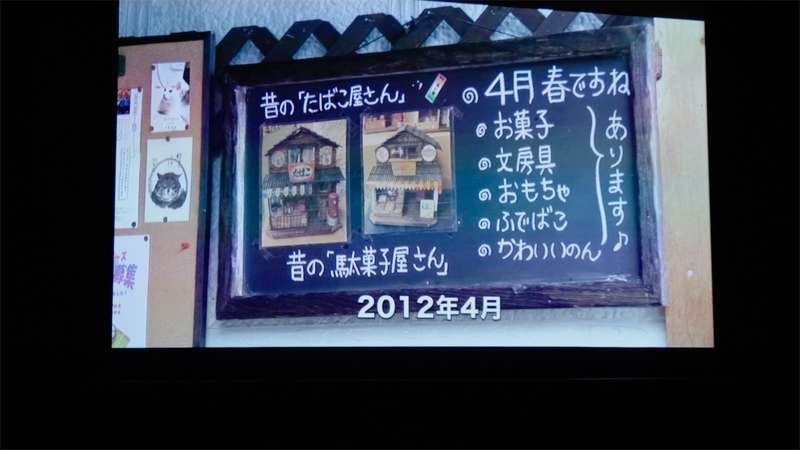 昔の「たばこ屋さん」
たばこ
昔の「駄菓子屋さん」
4月 春ですね
お菓子
文房具
おもちゃ
ふでばこ
かわいいのん
あります♪
募集
2012年4月